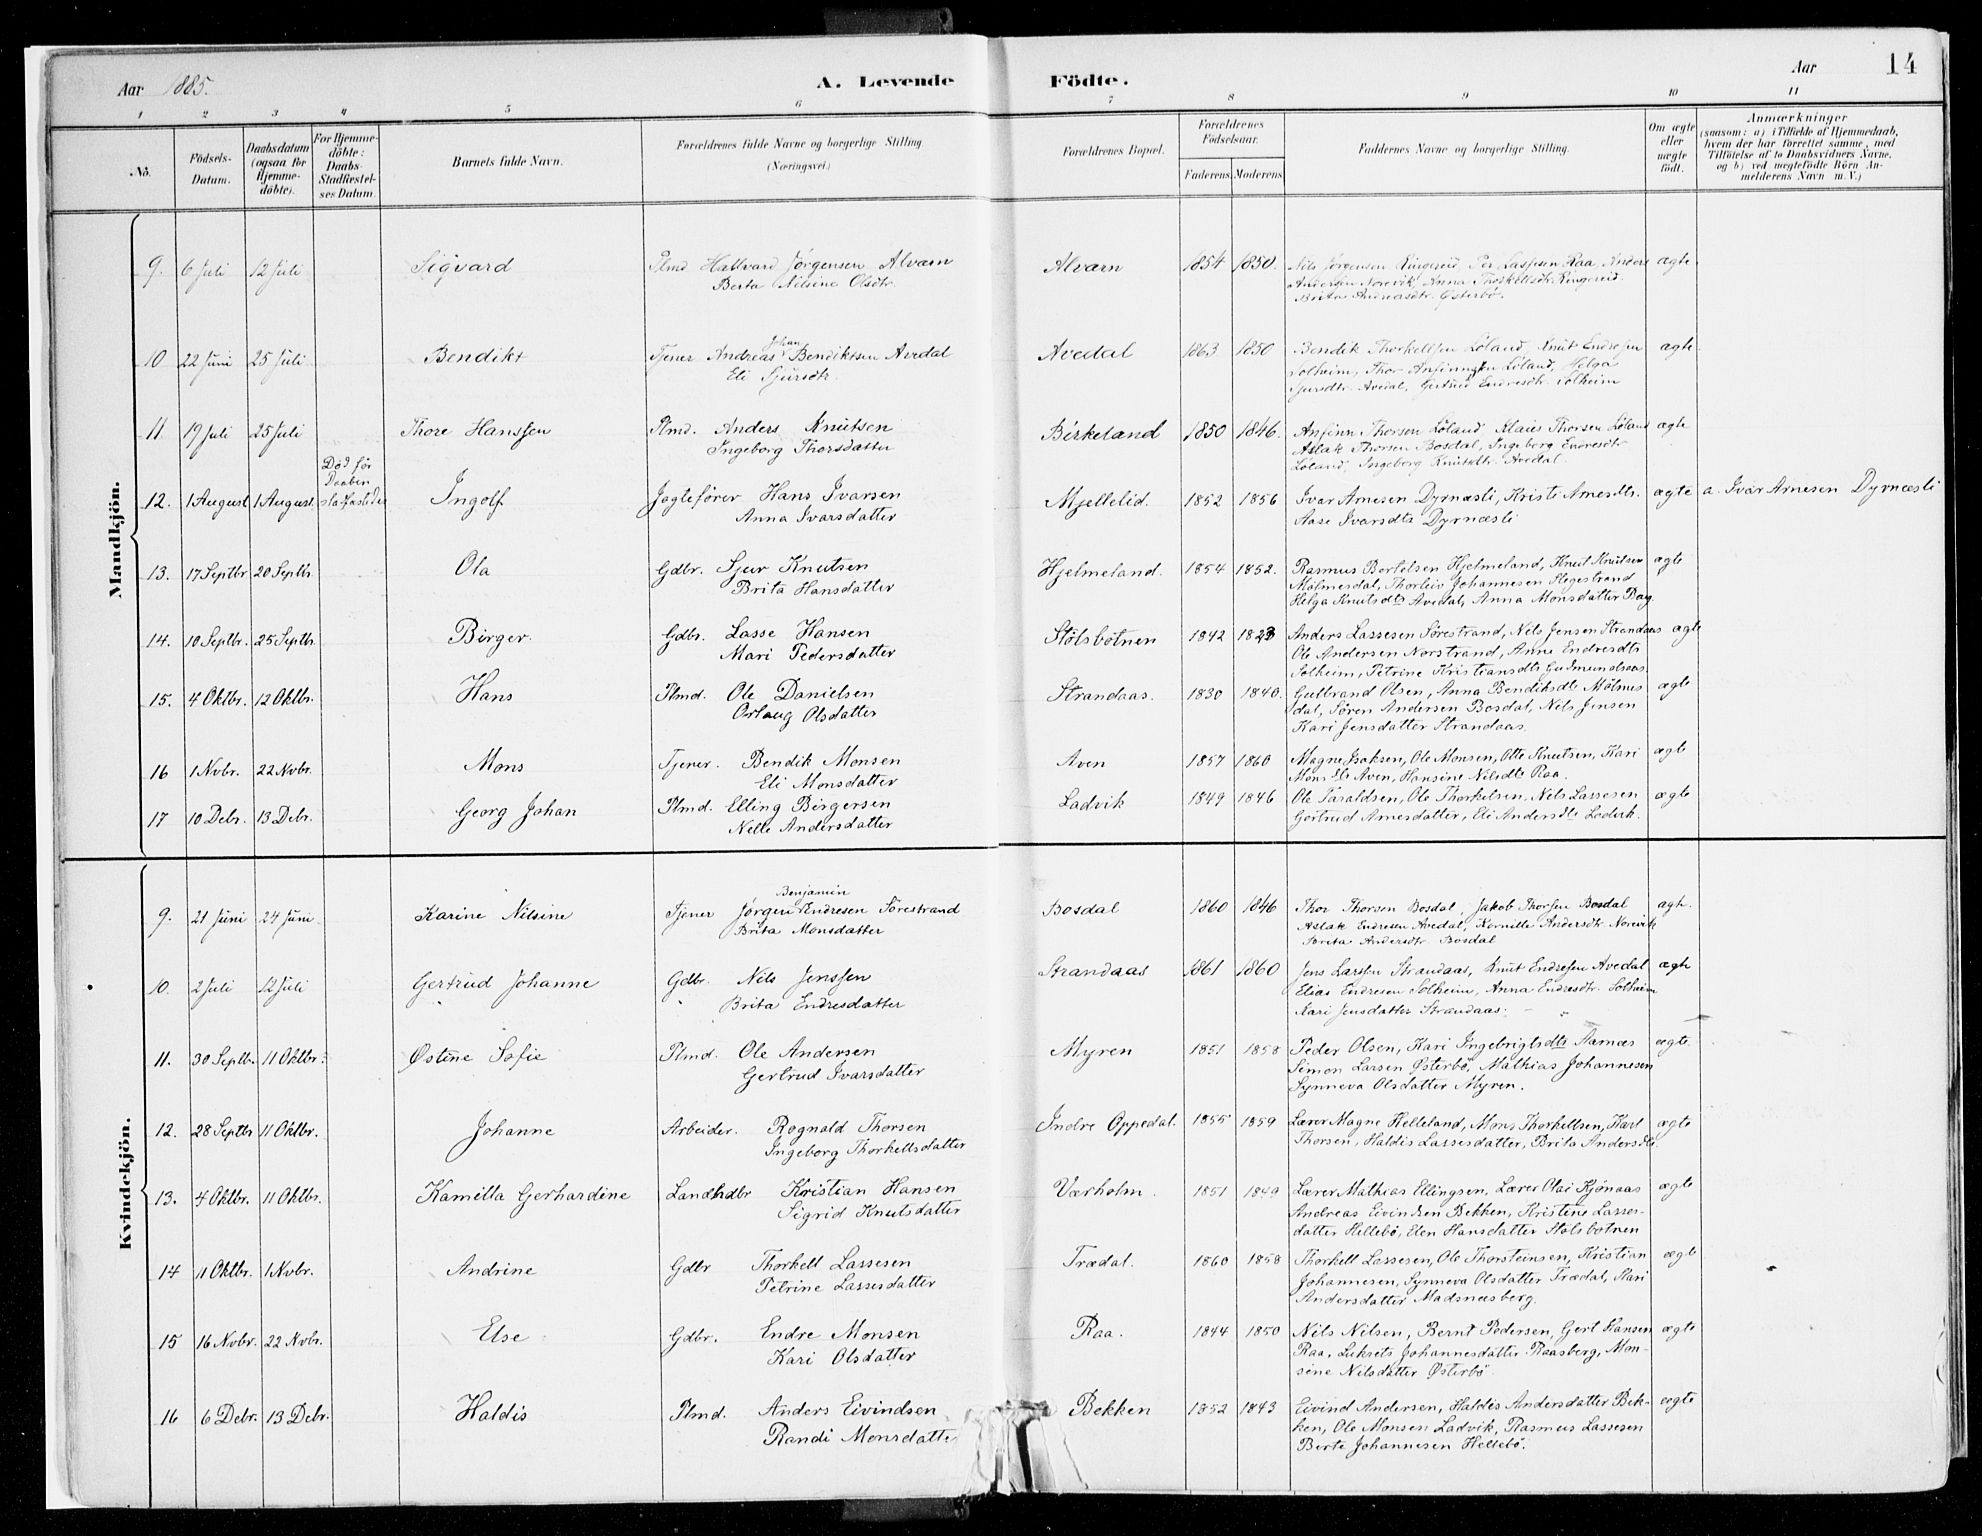 Aar 1885. A. Levende Födte. Aar 14
1 2 3 4 5 6 7 8 9 10 11
No. Födsels-Datum. Daabsdatum (ogsaa for Hjemme-döbte). For Hjemme-döbte: Daabs-Stadfæstel-ses Datum. Barnets fulde Navn. Forældrenes fulde Navne og borgerlige Stilling (Næringsvei). Forældrenes Bopæl. Forældrenes Födselsaar. Faderens Moderens Faddernes Navne og borgerlige Stilling. Om ægte eller uægte födt. Anmærkninger (saasom: a) i Tilfælde af Hjemmedaab, hvem der har forrettet samme, med Tilföielse af to Daabsvidners Navne, og b) ved uægtefödte Börn An-melderens Navn m. V.)
Mandkjön.
9. 6 Juli 12 Juli Sigvard Plmd Hallvard Jørgensen Alværn Alværn 1854 1850. Nils Jørgensen Ringereid, Per Lassesen Raa, Anders ægte
Berta Nilsine Olsdtr. Andersen Norevik, Anna Thorkelsdtr Ringereid
Brita Andreasdtr. Østerbö.
10 22 Juni 25 Juli Bendikt Tjener Andreas Johan Bendiktsen Avedal Avedal 1863 1850 Bendik Thorkellsen Löland, Knut Endresen ægte
Eli Sjursdtr. Solheim, Thor Anfinnsen Löland, Helga
Sjursdtr. Avedal, Gertrud Endresdtr. Solheim
11 19 Juli 25 Juli Thore Hanssen Plmd. Anders Knutsen Birkeland 1850 1846. Anfinn Thorsen Löland, Klaus Thorsen Löland ægte
Ingeborg Thorsdatter Aslak Thorsen Bosdal, Ingeborg Endresdtr
Löland, Ingeborg Knutsdtr. Avedal.
Död før Daaben
12. 1 August 1 August. Ingolf Jagtefører Hans Ivarsen Mjellelid. 1852 1856 Ivar Arnesen Dyrnæsli, Kristi Arnesdtr. ægte a. Ivar Arnesen Dyrnæsli
Anna Ivarsdatter Aase Ivarsdtr Dyrnæsli
13. 17 Septbr 20 Septbr. Ola Gdbr. Sjur Knutsen Hjelmeland. 1854 1852. Rasmus Bertelsen Hjelmeland, Knut Knutsen ægte
Brita Hansdatter Mölmesdal, Thorleiv Johannesen Slegestrand
Helga Knutsdtr Avedal, Anna Monsdatter Bag
14. 10 Septbr. 25 Septbr. Birger. Gdbr. Lasse Hansen Stölsbotnen 1842 1823 Anders Lassesen Sörestrand, Nils Jensen Strandaas ægte
Mari Pedersdatter Ole Andersen Norstrand, Anne Endresdtr
Solheim, Petrine Kristiansdtr Gudmundsaas
15. 4 Oktbr. 12 Oktbr. Hans Plmd. Ole Danielsen Strandaas. 1830 1840. Gulbrand Olsen, Anna Bendiksdtr Mölmes ægte
Orlaug Olsdatter dal, Sören Andersen Bosdal, Nils Jensen
Kari Jensdatter Strandaas.
16 1 Nvbr. 22 Nvbr. Mons Tjener. Bendik Monsen Aven 1857 1860 Magne Isaksen, Ole Monsen, Otte Knutsen, Kari ægte
Eli Monsdatter Monsdtr Aven, Hansine Nilsdtr Raa.
17 10 Debr. 13 Debr. Georg Johan Plmd. Elling Birgersen Ladvik 1849 1846 Ole Taraldsen, Ole Thorkelsen, Nils Lassesen ægte
Nelle Andersdatter Gertrud Arnesdatter, Eli Andersdtr Ladvik.
Kvindekjön.
9. 21 Juni 24 Juni Karine Nilsine Tjener Jørgen Benjamin Endresen Sörestrand Bosdal 1860 1846 Thor Thorsen Bosdal, Jakob Thorsen Bosdal ægte.
Brita Monsdatter Aslak Endresen Avedal, Kornille Andersdtr. Norevik
Brita Andersdtr. Bosdal
10. 2 Juli 12 Juli Gertrud Johanne Gdbr. Nils Jenssen Strandaas 1861 1860 Jens Larssen Strandaas, Knut Endresen Avedal ægte
Brita Endresdatter Elias Endresen Solheim, Anna Endresdtr. Solheim
Kari Jensdatter Strandaas.
11. 30 Septbr. 11 Oktbr. Østine Sofie Plmd. Ole Andersen Myren 1851 1858 Peder Olsen, Kari Ingebrigtsdtr Aarnæs ægte
Gertrud Ivarsdatter Simon Larsen Østerbö, Mathias Johannesen
Synneva Olsdatter Myren.
12. 28 Septbr 11 Oktbr. Johanne Arbeider. Rognald Thorsen Indre Oppedal. 1855 1859 Lærer Magne Helleland, Mons Thorkellsen, Karl ægte
Ingeborg Thorkellsdatter Thorsen, Haldis Lassesdatter, Brita Andersdtr.
13. 4 Oktbr. 11 Oktbr. Kamilla Gerhardine Landhdbr Kristian Hansen Værholm. 1851 1849 Lærer Mathias Ellingsen, Lærer Olai Kjönaas ægte
Sigrid Knutsdatter Andreas Eivindsen Bekken, Kristine Lasses-
datter Hellebö, Elen Hansdatter Stölsbotnen
14 11 Oktbr. 1 Nvbr. Andrine Gdbr Thorkell Lassesen Trædal. 1860 1858 Thorkell Lassesen, Ole Thorsteinsen, Kristian ægte
Petrine Lassesdatter Johannesen, Synneva Olsdatter Trædal, Kari
Andersdatter Madsnæsberg.
15 16 Nvbr. 22 Nvbr. Else Gdbr. Endre Monsen Raa. 1844 1850 Nils Nilsen, Bernt Pedersen, Gert Hansen ægte
Kari Olsdatter Raa, Luksets Johannesdatter Raasberg, Mon-
sine Nilsdatter Østerbö
16 6 Debr. 13 Debr. Haldis Plmd. Anders Eivindsen Bekken 1852 1843 Eivind Andersen, Haldis Andersdatter Bek- ægte
Randi Monsdatter ken, Ole Monsen Ladvik, Rasmus Lassesen
Berte Johannesen Hellebö.